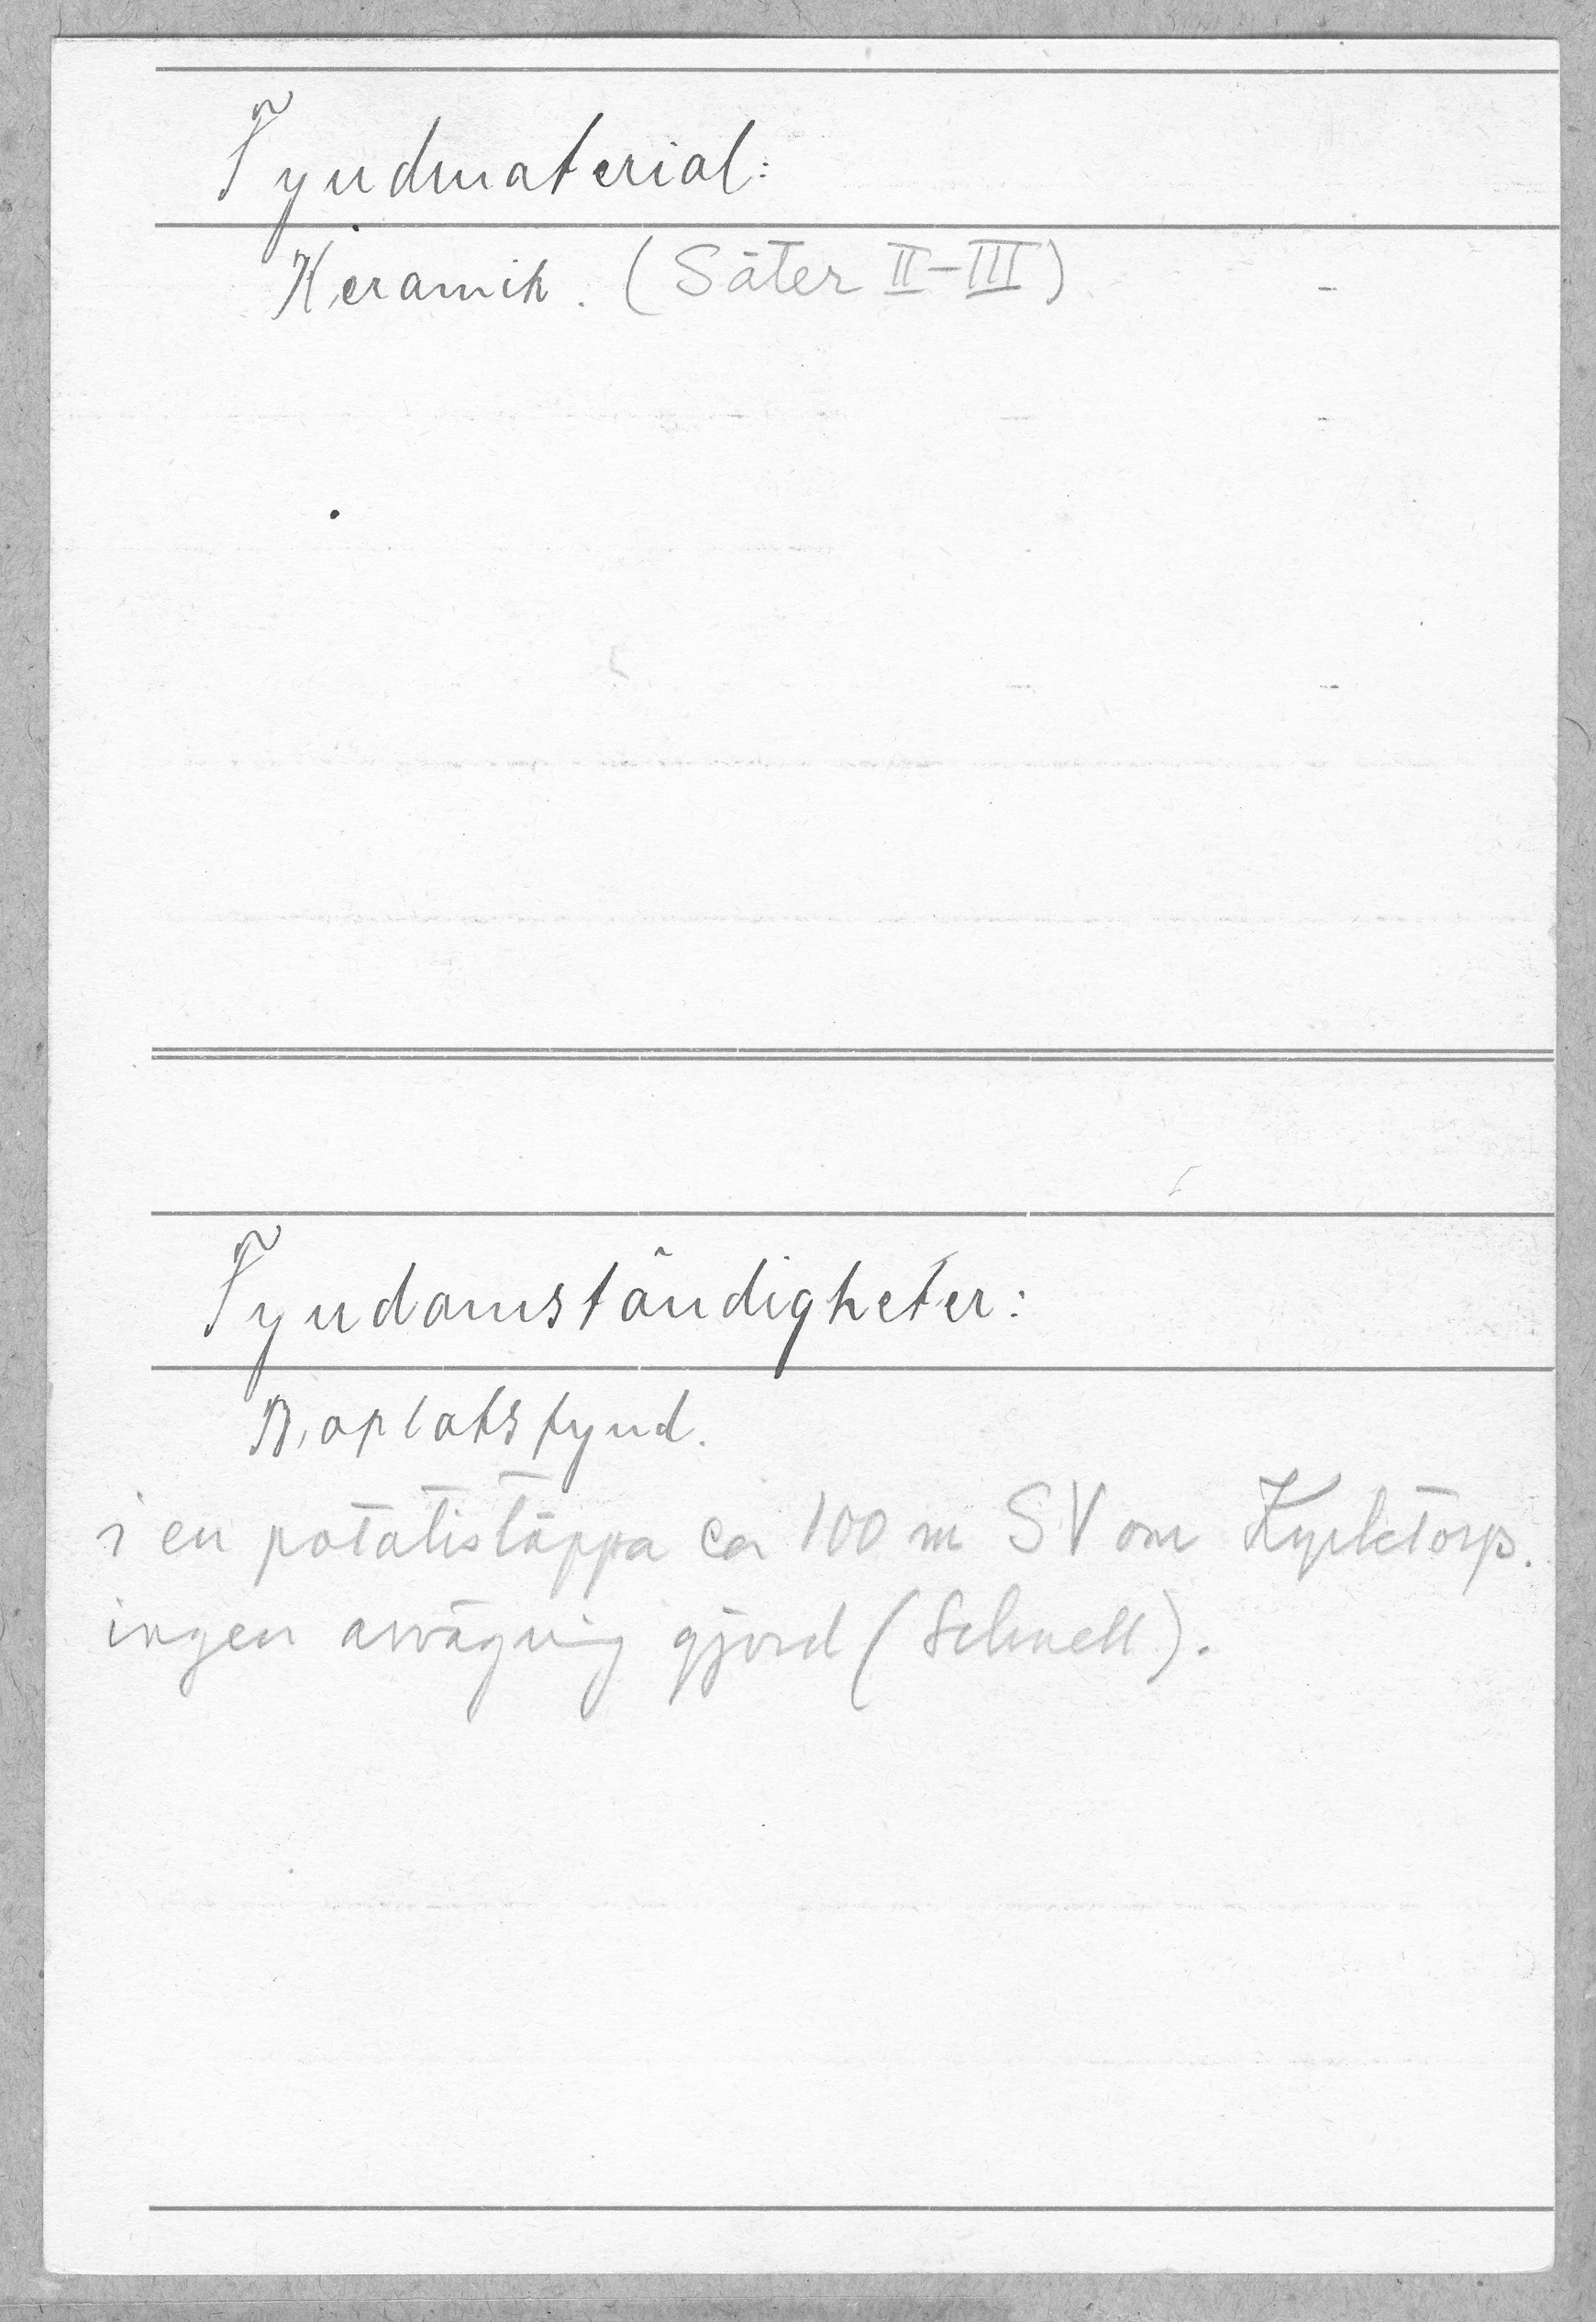 Fyndmaterial:
Keramik. (Säter II-III)
Fyndomständigheter:
Boplatsfynd.
i en potatistäppa ca 100 m SV om Kyrktorp.
ingen avvägning gjord (Schnell).